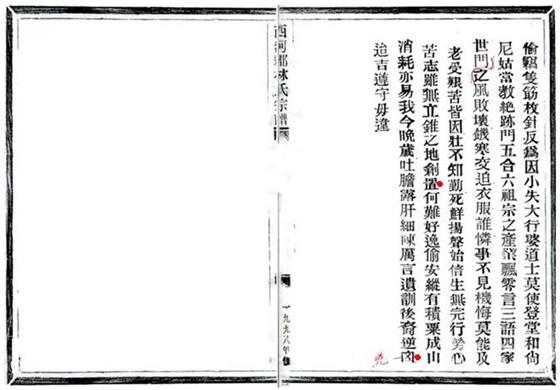 偷竊隻筯枚針反為因小失大行婆道士莫使登堂和尚
尼姑當教絕跡門五合六祖宗之產業飄零言三語四家
世門之風敗壞饑寒交迫衣服誰憐事不見機悔莫能及
老受艱苦皆因壯不知勤死鮮揚聲始信生無完行勞心
苦志雖無立錐之地創置何難好逸偷安縱有積粟成山
消耗亦易我今晚歲吐膽露肝細陳厲言遺訓後裔逆凶
迪吉遵守毋違
西河郡林氏宗譜
一九九八年